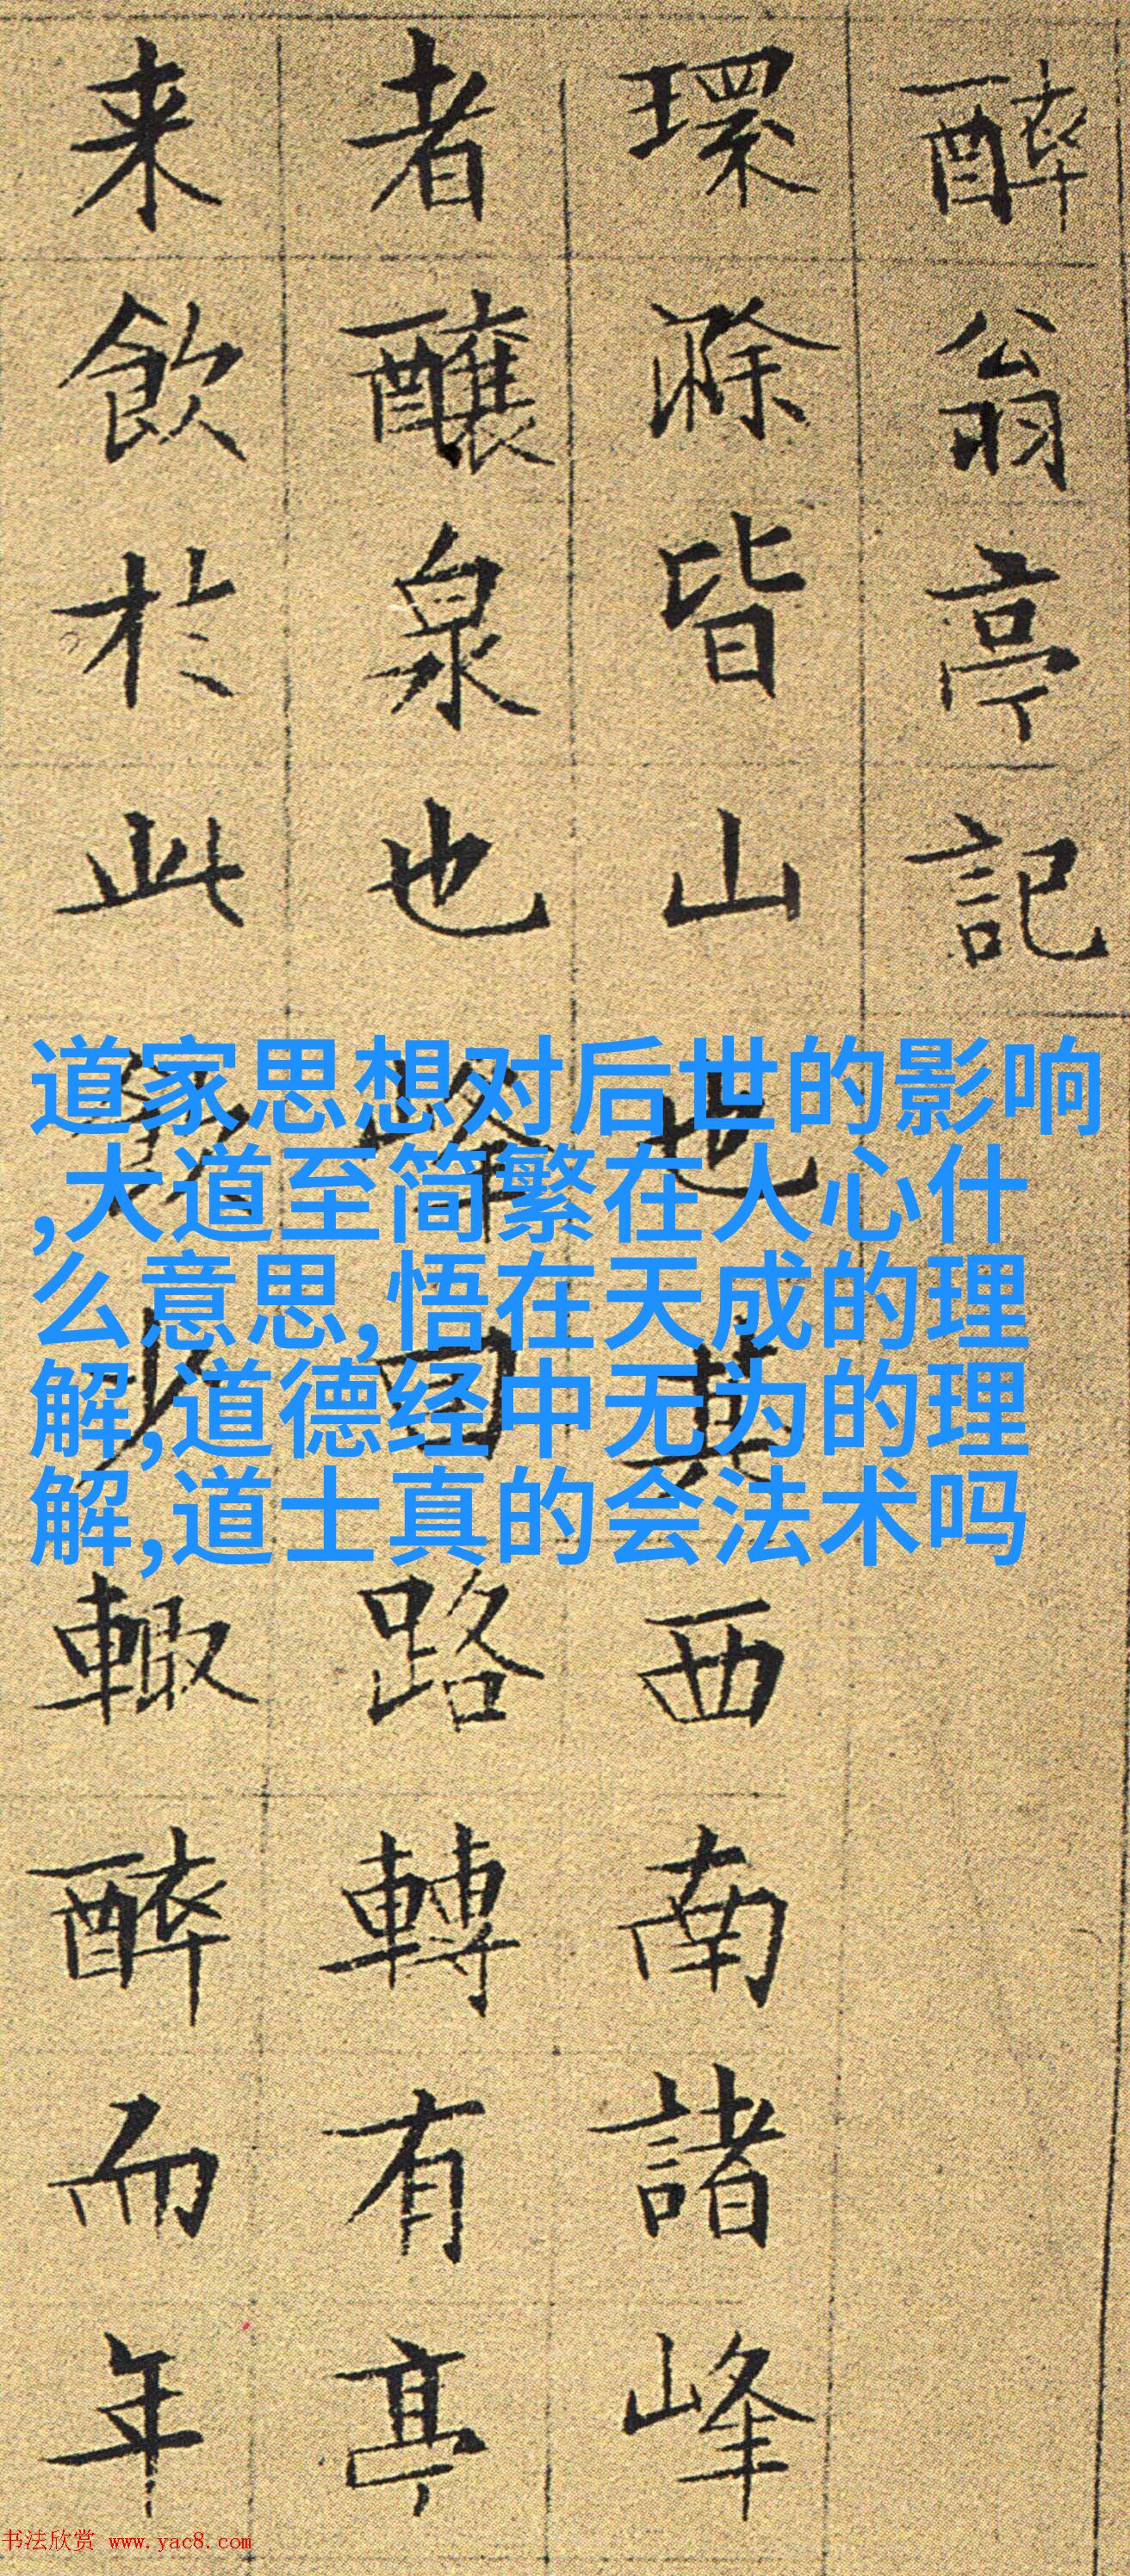 醉翁亭記
環滁皆山也其西南諸峰
者釀泉也峰回路轉有亭
来飲於此飲少輙醉而年
道家思想对后世的影响
,大道至简繁在人心什
么意思,悟在天成的理
解,道德经中无为的理
解,道士真的会法术吗
书法欣赏 www.yac8.com